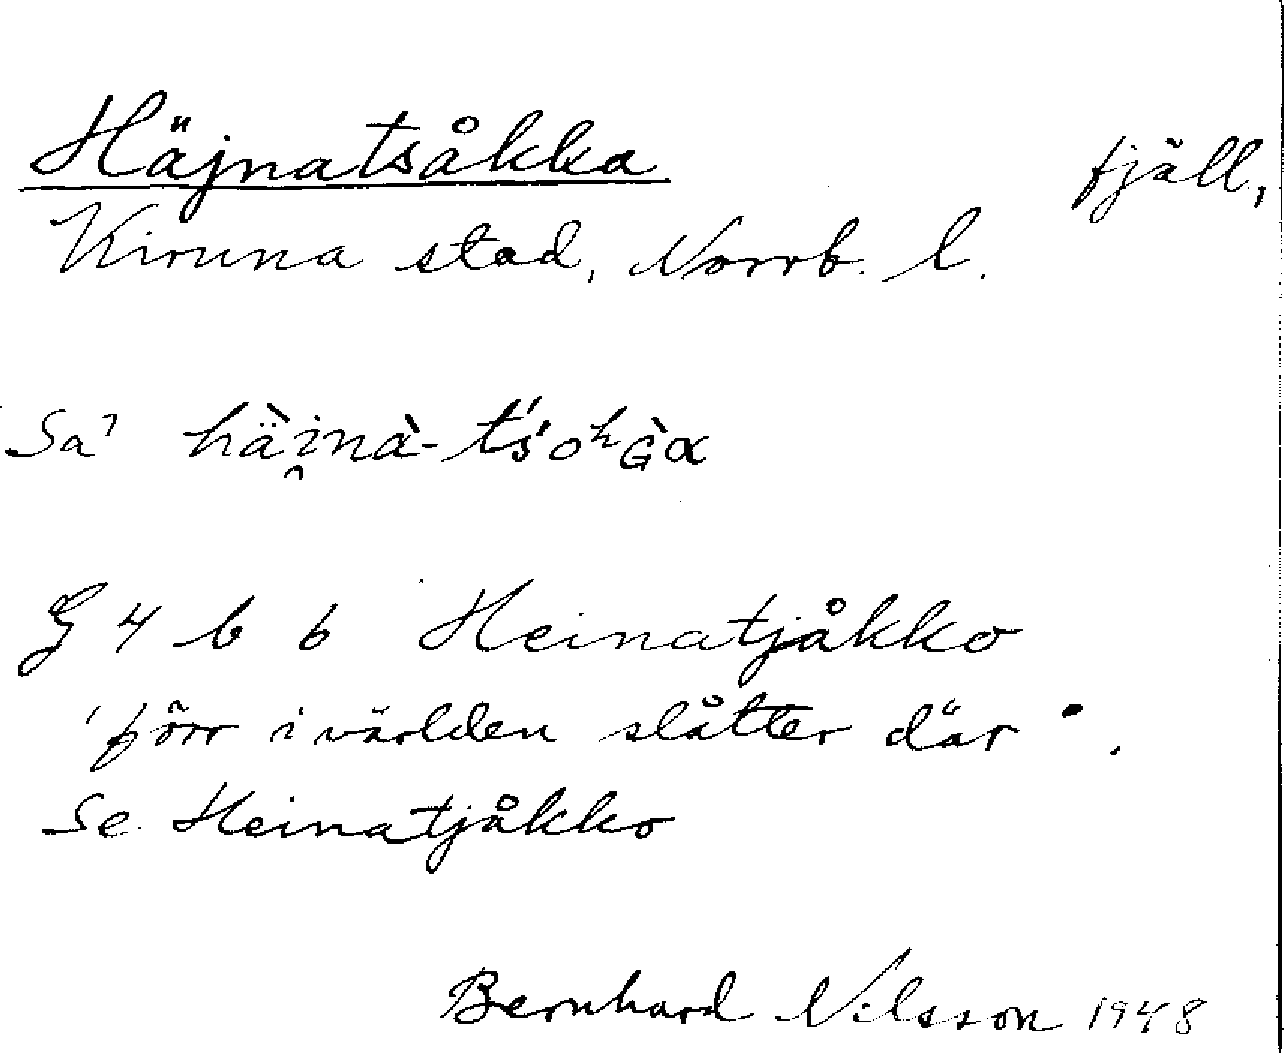 Häjnatsåkka fjäll,
Kiruna stad, Norrb. l.
Sa' hä̀i̯nà-t́śoʰG̀ɑ
G 4 b 6 Heinatjåkko
"förr i världen slåtter där".
Se Heinatjåkko
Bernhard Nilsson 1948